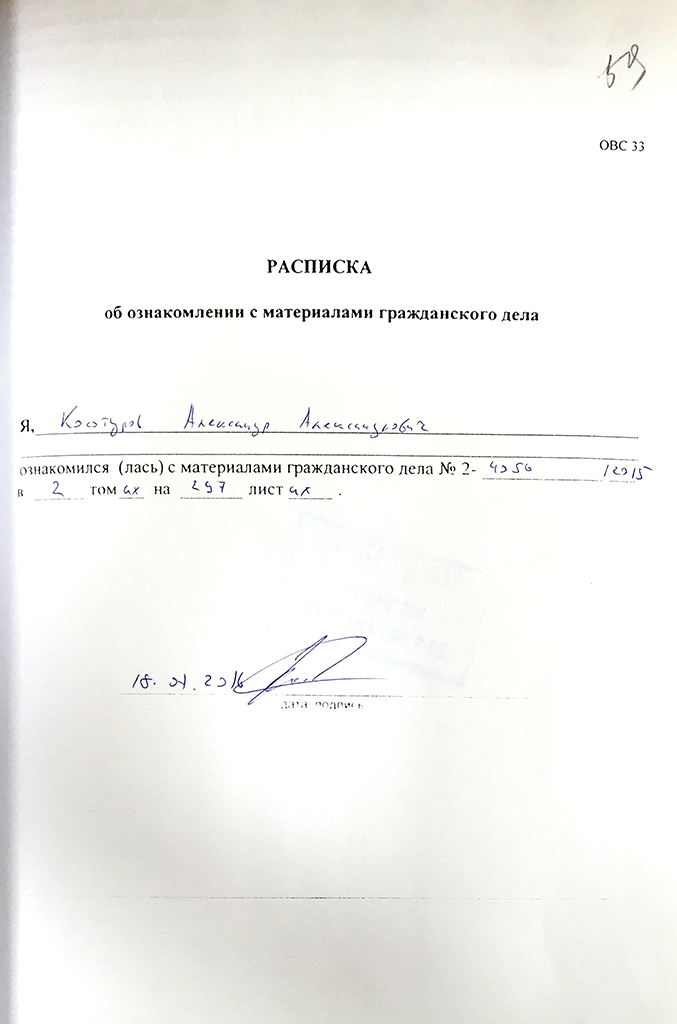 59
ОВС 33
РАСПИСКА
об ознакомлении с материалами гражданского дела
Я, Косотуров Александр Александрович
ознакомился (лась) с материалами гражданского дела № 2- 4056 /2015
в 2 томах на 297 листах .
18.01.2016
дата подпись